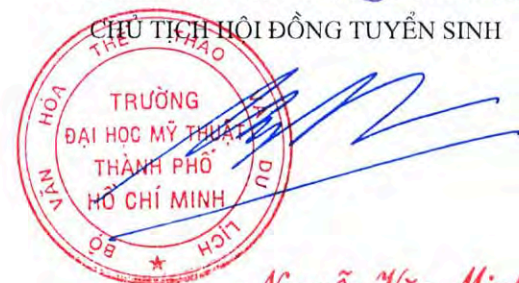 CHỦ TỊCH HỘI ĐỒNG TUYỂN SINH
BỘ VĂN HÓA THỂ THAO VÀ DU LỊCH
TRƯỜNG
ĐẠI HỌC MỸ THUẬT
THÀNH PHỐ
HỒ CHÍ MINH
Nguyễn Văn Minh